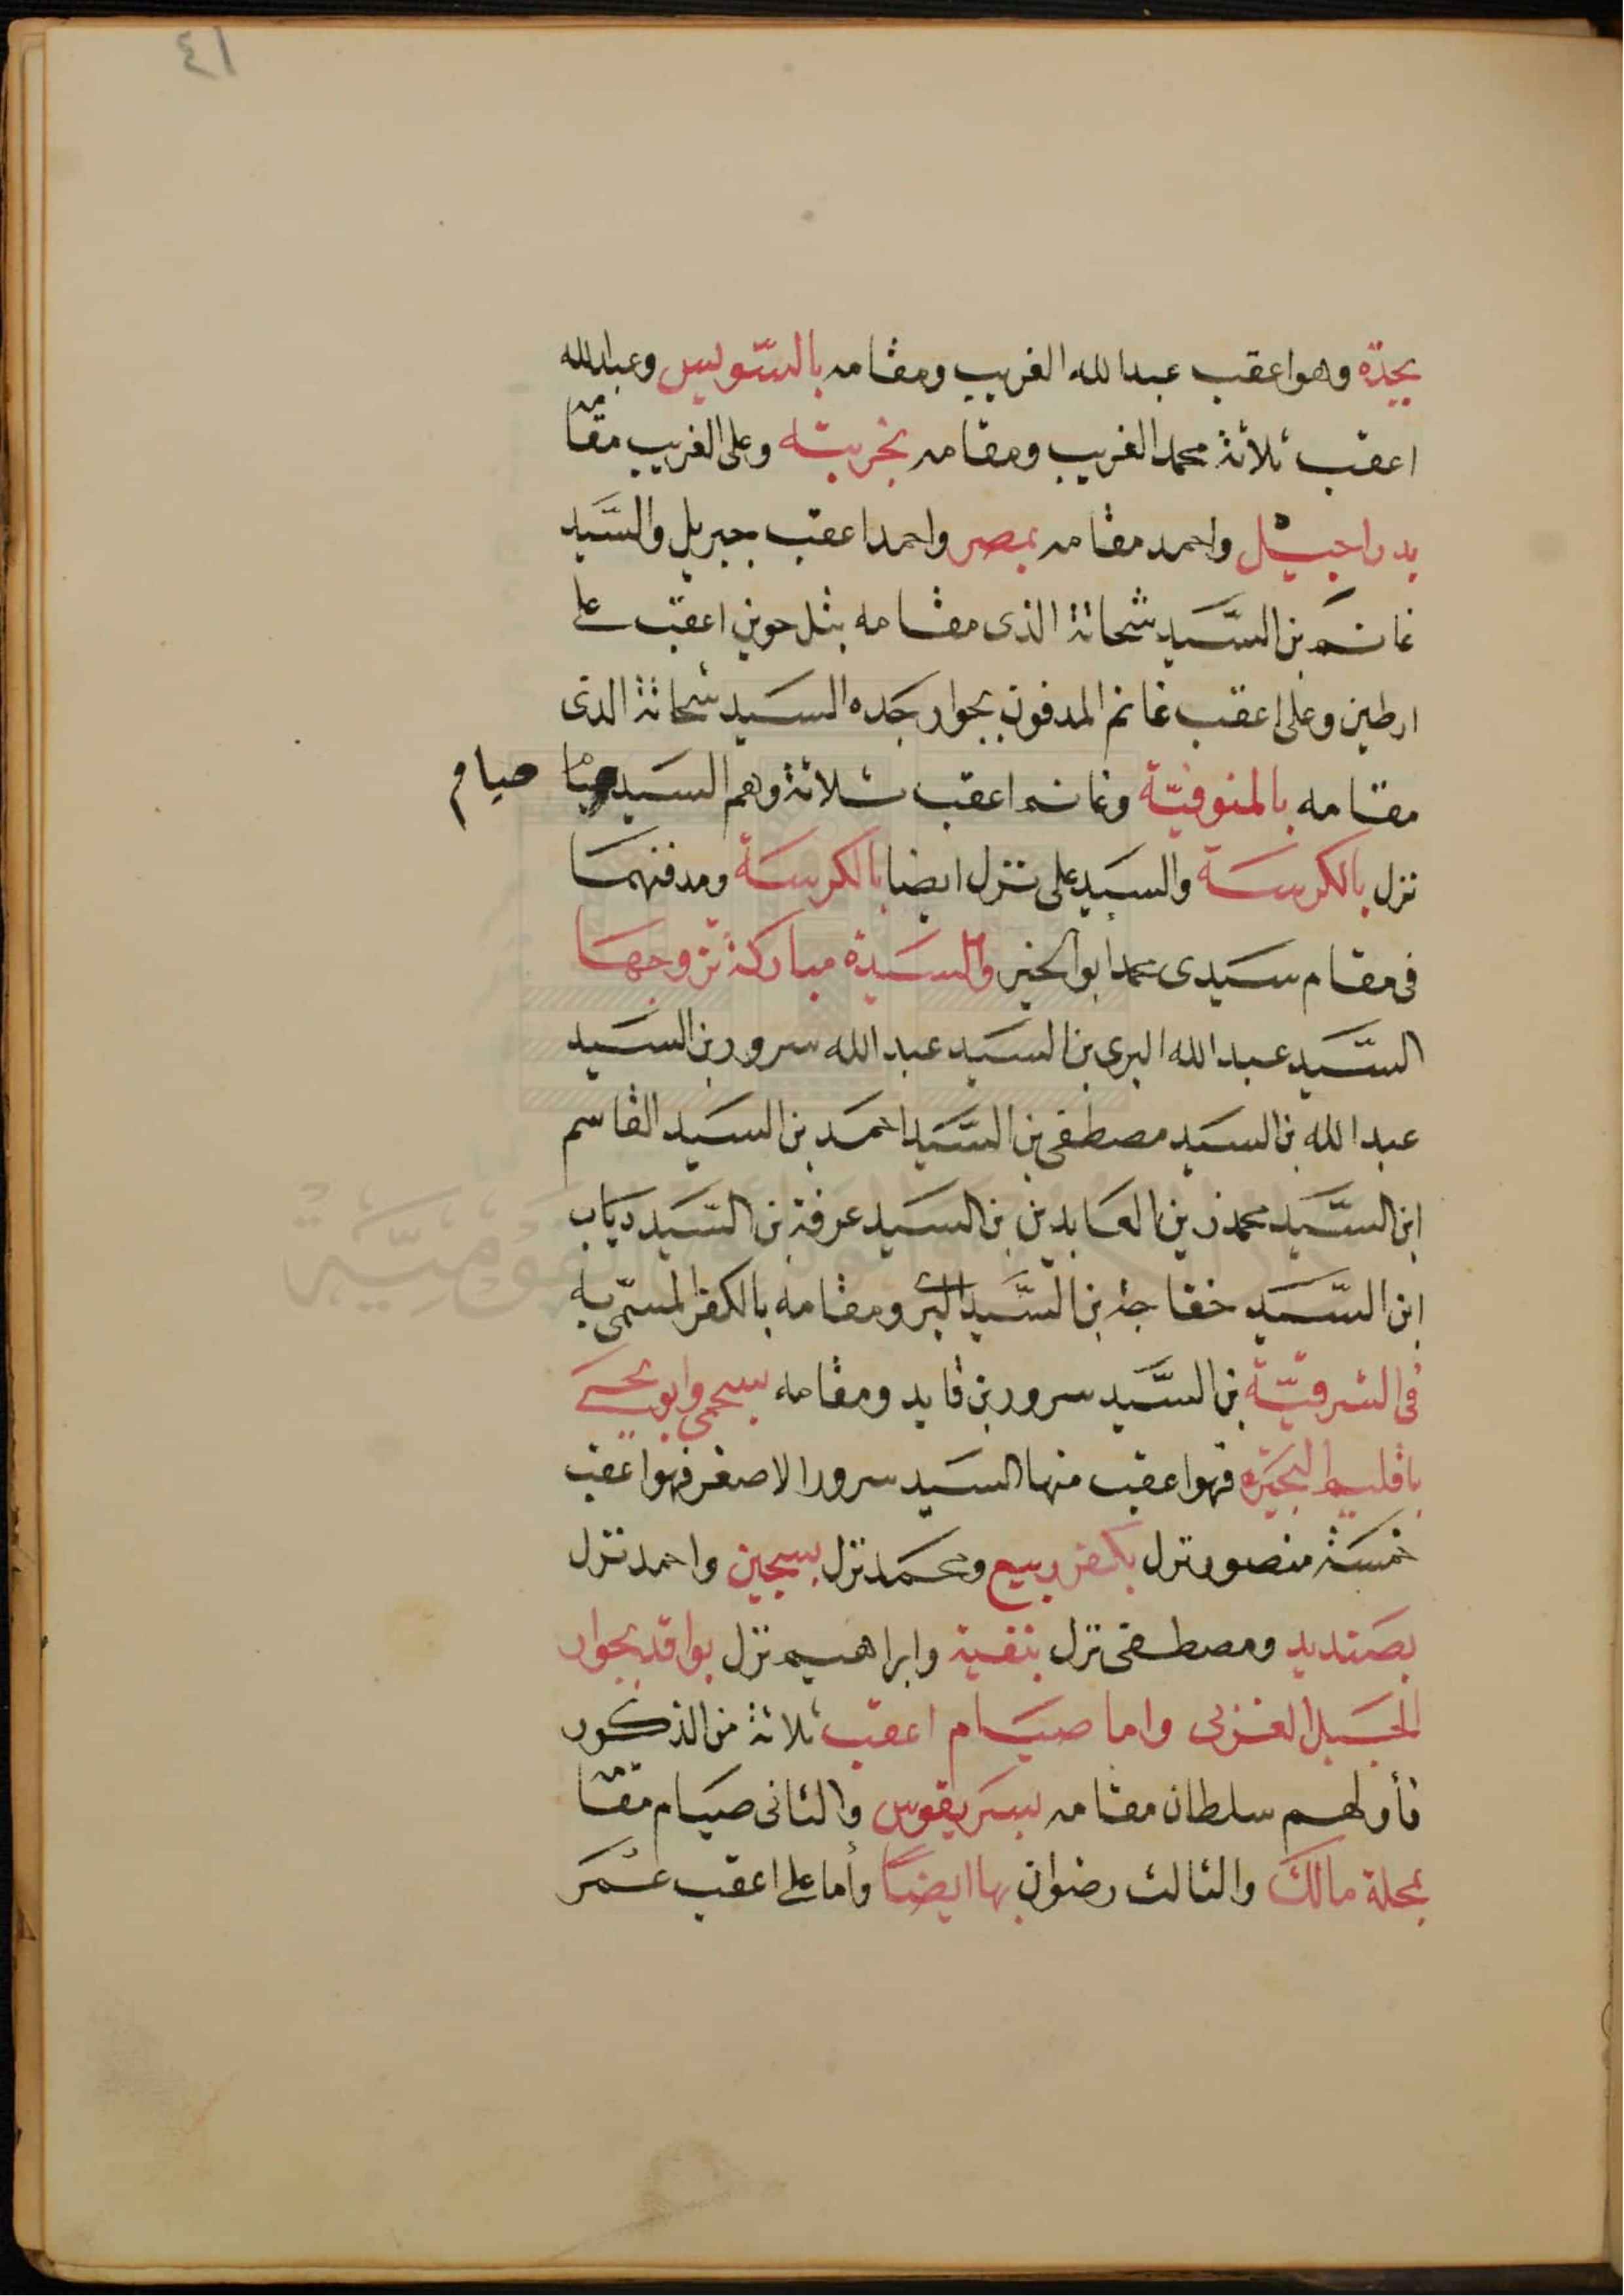 ٤١
بجدّه وهو اعقب عبد الله الغريب ومقامه بالسّويس وعبد الله
اعقب ثلاثة محمد الغريب ومقامه بخربته وعلى الغريب مقامه
واحمد مقامه بمصر واحمد اعقب جبريل والسَّيد
غانم بن السَّيد شحاتة الذى مقامه بثل حوين اعقب على
ارطين وعلى اعقب غانم المدفون بجوار جده السيد شحاتة الذى
مقامه بالمنوفيّة وغانم اعقب ثلاثة وهم السيد صيام صيام
نزل بالكرسة والسيد على نزل ايضا بالكرسة ومدفنهما
فى مقام سيدى محمد ابو الخير والسيدة مباركة تزوجها
السَّيد عبد الله البرى بن السيد عبد الله سرور بن السيد
عبد الله بن السيد مصطفى بن السَّيد احمد بن السيد القاسم
ابن السَّيد محمد زين العابدين بن السيد عرفة بن السَّيد دياب
ابن السَّيد خفاجة بن السَّيد البرى ومقامه بالكفر المسمّى به
فى الشرقيّة بن السَّيد سرور بن فايد ومقامه
باقليم البحيره فهو اعقب منها السيد سرور الاصغر فهو اعقب
خمسة منصور نزل بكفر ربيع ومحمد نزل بسجين واحمد نزل
بصنديد ومصطفى نزل بنفية وابراهيم نزل بواقد بجوار
الجبل الغزبى واما صيام اعقب ثلاثة من الذكور
فأولهم سلطان مقامه بسريقوس والثانى صيام مقامه
بمحلة مالك والثالث رضوان بها ايضًا وأما على اعقب عمر
دار الكتب والوثائق القومية